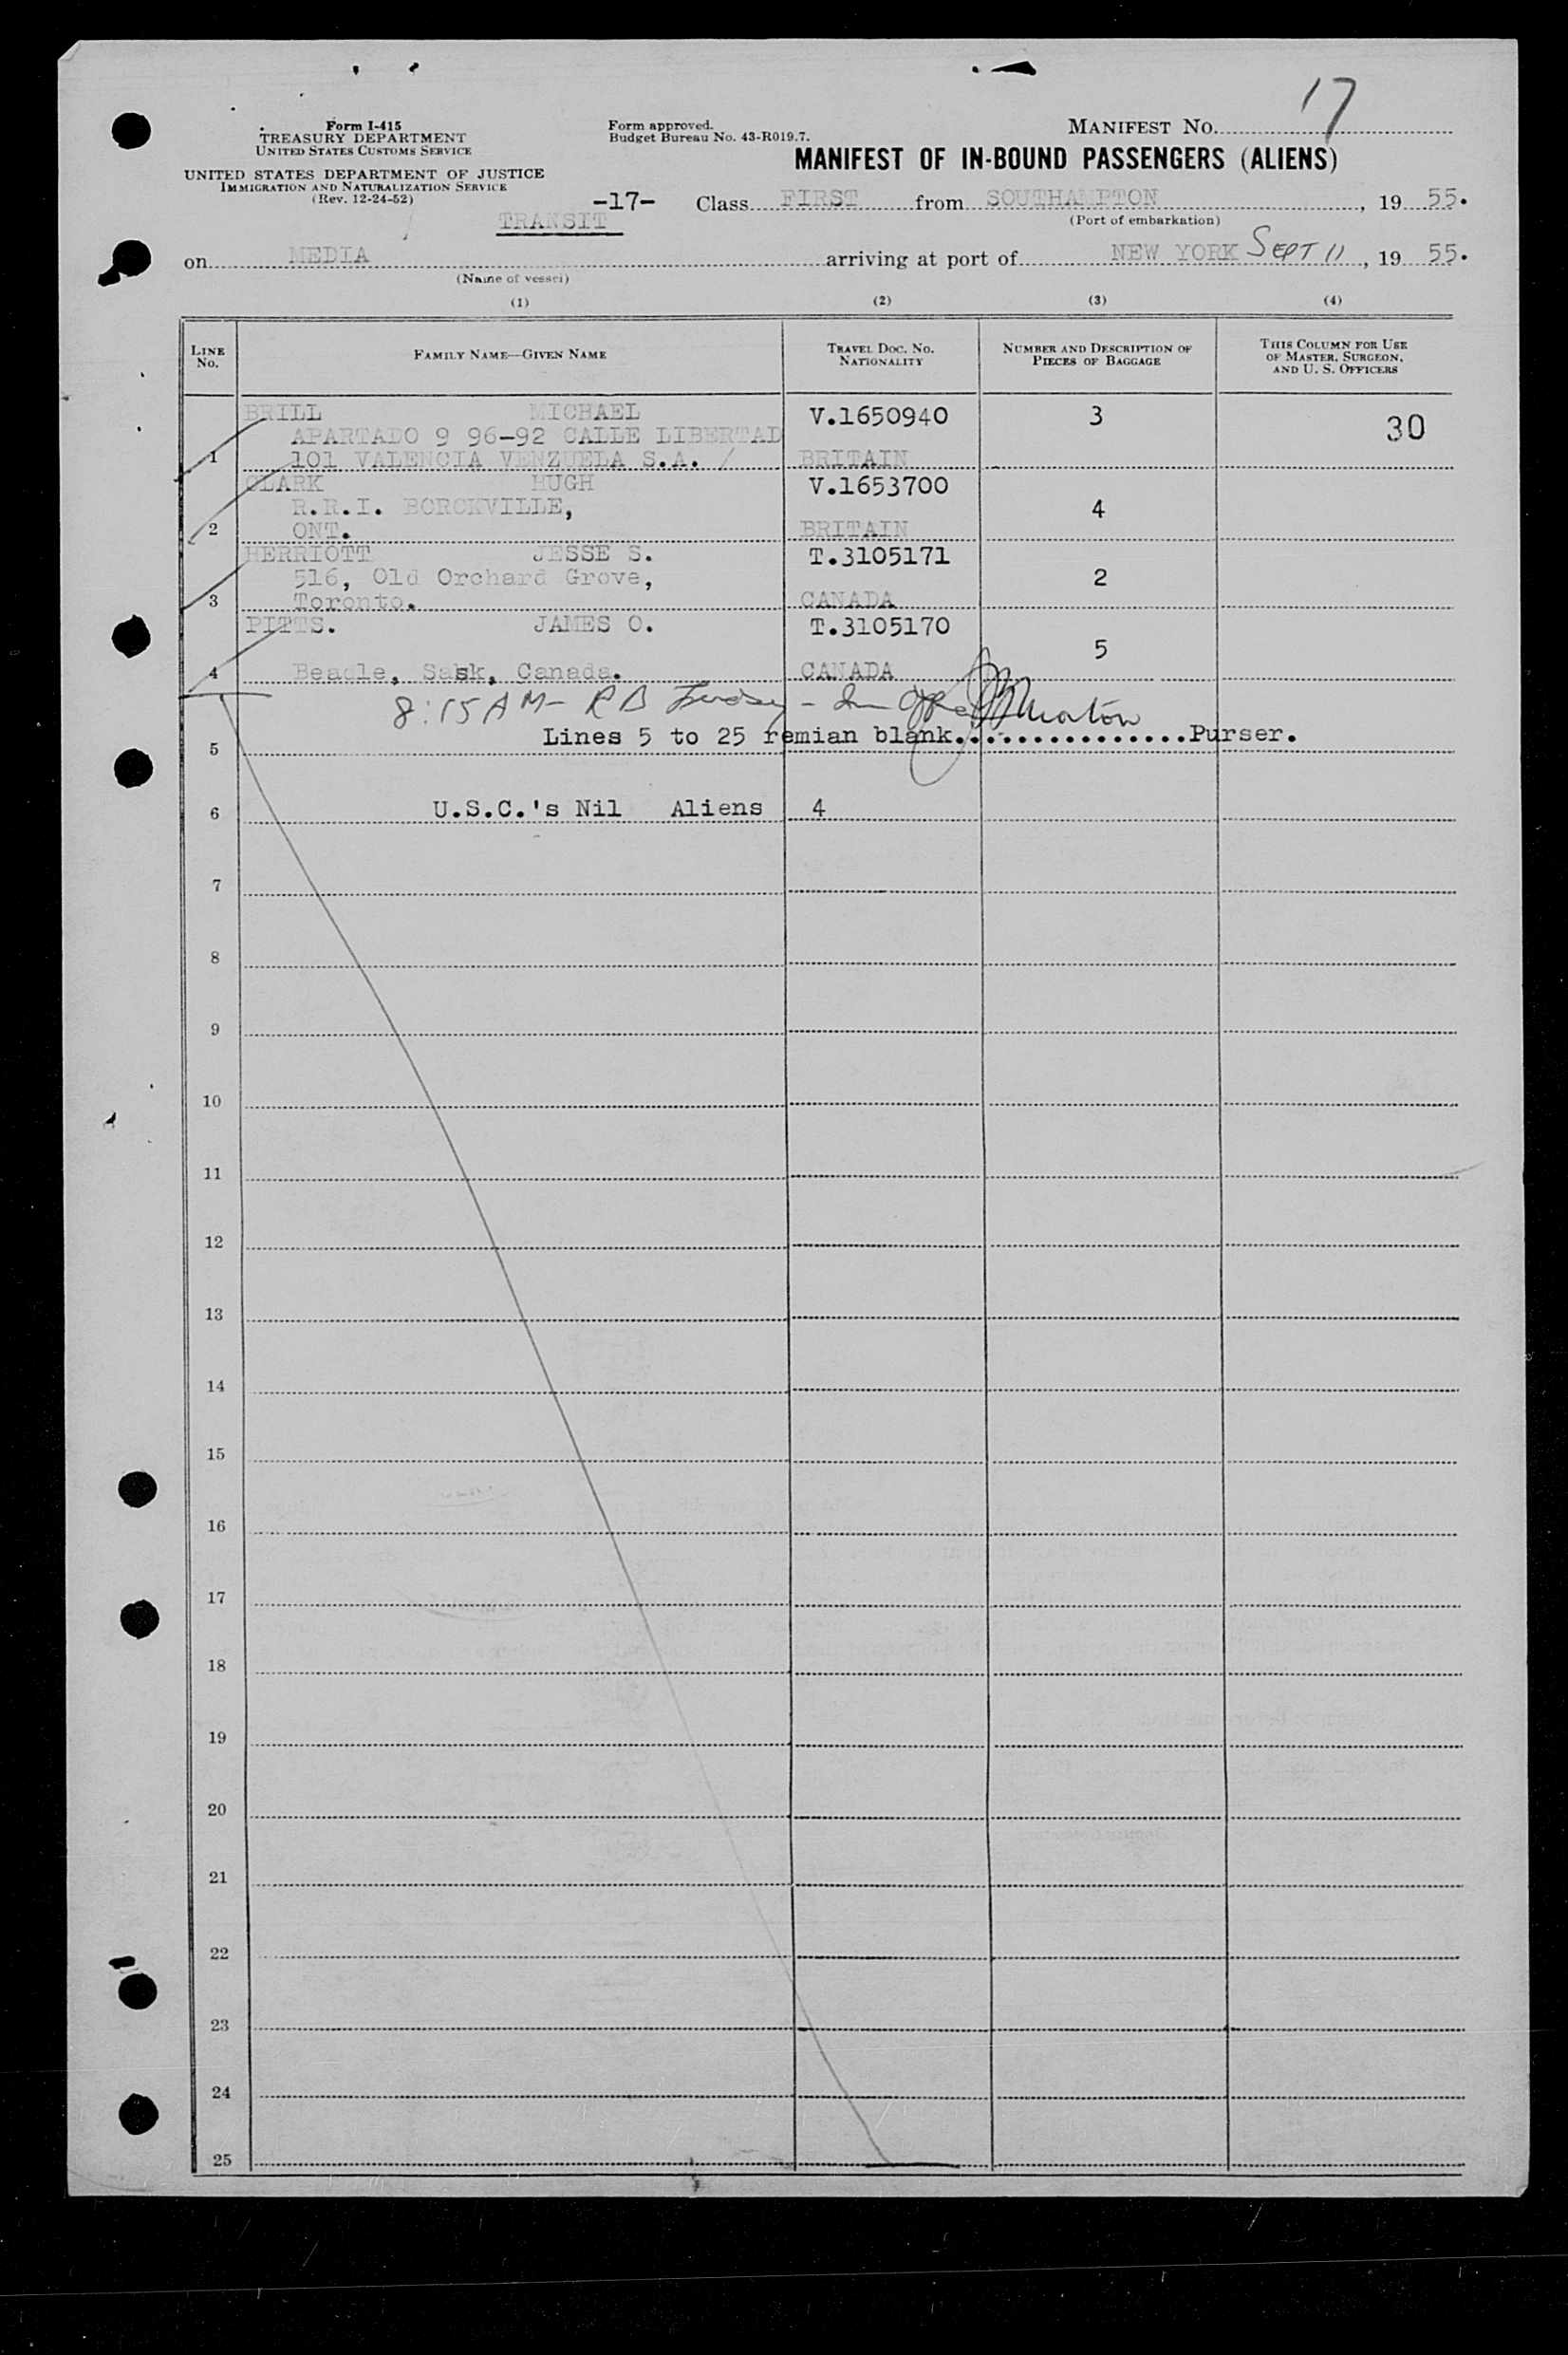 17
Form I-415
TREASURY DEPARTMENT
UNITED STATES CUSTOMS SERVICE
UNITED STATES DEPARTMENT OF JUSTICE
IMMIGRATION AND NATURALIZATION SERVICE
(Rev. 12-24-52)
Form approved.
Budget Bureau No. 43-R019.7.
MANIFEST NO.
MANIFEST OF IN-BOUND PASSENGERS (ALIENS)
-17- Class FIRST from SOUTHAMPTON, 19 55.
TRANSIT
(Port of embarkation)
on MEDIA arriving at port of NEW YORK SEPT 11, 19 55.
(Name of vessel)
(1) (2) (3) (4)
LINE NO.
FAMILY NAME—GIVEN NAME
TRAVEL DOC. NO. NATIONALITY
NUMBER AND DESCRIPTION OF PIECES OF BAGGAGE
THIS COLUMN FOR USE OF MASTER, SURGEON, AND U. S. OFFICERS
BRILL MICHAEL V.1650940 3 30
APARTADO 9 96-92 CALLE LIBERTAD
1 101 VALENCIA VENZUELA S.A. / BRITAIN
CLARK HUGH V.1653700
R.R.I. BORCKVILLE, 4
2 ONT. BRITAIN
HERRIOTT JESSE S. T.3105171
516, Old Orchard Grove, 2
3 Toronto. CANADA
PITTS. JAMES O. T.3105170
5
4 Beadle, Sask, Canada. CANADA
8:15 AM - R B
Lines 5 to 25 remian blank................Purser.
5
6 U.S.C.'s Nil Aliens 4
7
8
9
10
11
12
13
14
15
16
17
18
19
20
21
22
23
24
25